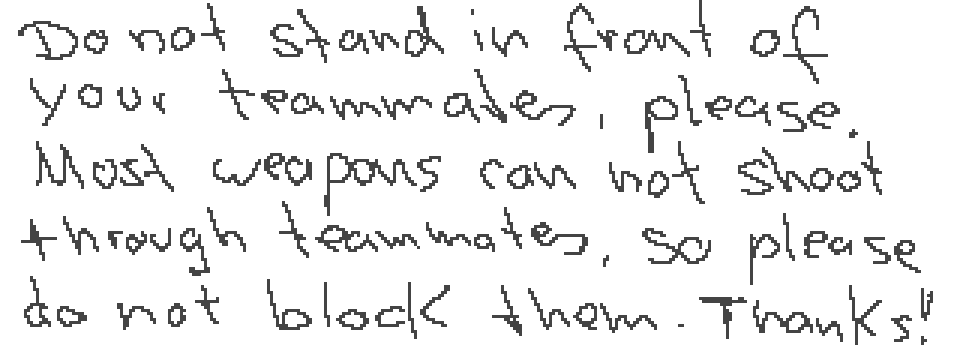 Do not stand in front of
your teammates, please.
Most weapons can not shoot
through teammates, so please
do not block them. Thanks!